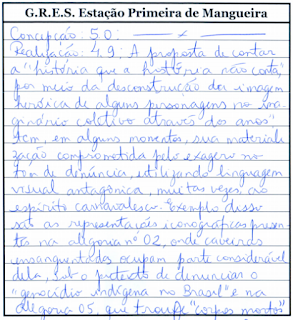 G.R.E.S. Estação Primeira de Mangueira
Concepção: 5.0: — x —
Realização: 4.9: A proposta de contar
a "história que a história não conta",
por meio da desconstrução da imagem
heróica de alguns personagens no ima-
ginário coletivo através dos anos"
tem, em alguns momentos, sua materiali
zação comprometida pelo exagero no
tom de denúncia, utilizando linguagem
visual antagônica, muitas vezes, ao
espírito carnavalesco. Exemplo disso
são as representações iconográficas presen
ta na alegoria nº 02, onde caveiras
ensanguentadas ocupam parte considerável
dela, sob o pretexto de denunciar o
"genocídio indígena no Brasil" e na
alegoria 05, que trouxe "corpos mortos"